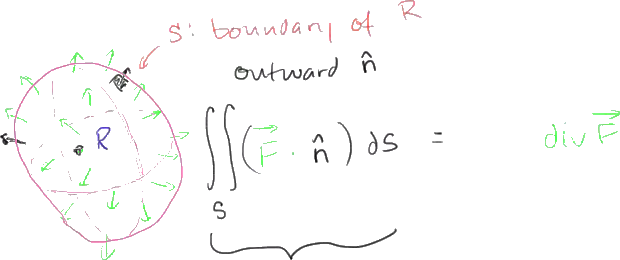 S: boundary of R
outward n̂
R
∬ (F⃗ · n̂) dS = div F⃗
S